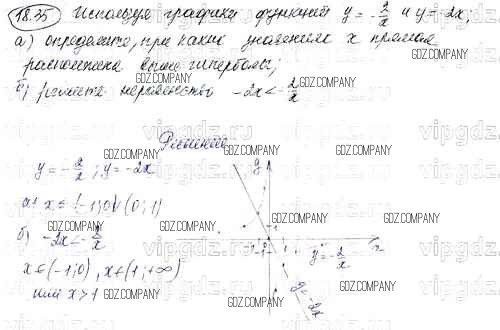 18.35 Используя графики функций y = -2/x и y = -2x;
а) определите, при каких значениях x прямая
расположена выше гиперболы;
б) решите неравенство -2x < -2/x
GDZ.COMPANY
Решение
y = -2/x ; y = -2x
а) x ∈ (-1;0) ∪ (0;1)
б) -2x < -2/x
x ∈ (-1;0), x ∈ (1;+∞)
или x > 1
y
x
y = -2/x
y = -2x
vipgdz.com